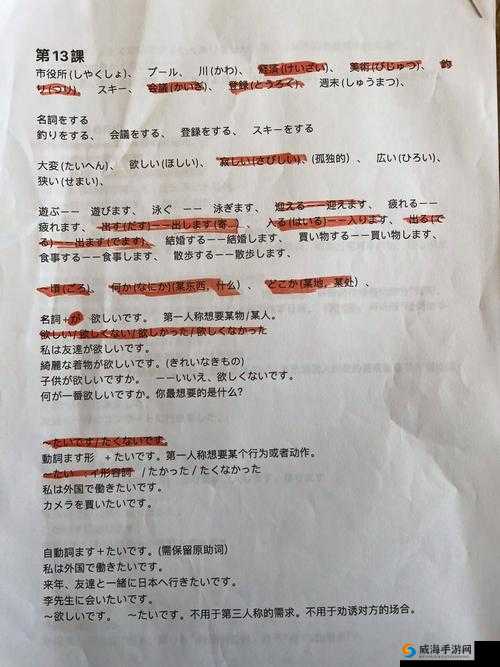 第13課
市役所(しやくしょ)、 プール、 川(かわ)、 経済(けいざい)、 美術(びじゅつ)、 釣
り(つり)、 スキー、 会議(かいぎ)、 登録(とうろく)、 週末(しゅうまつ)、
名詞をする
釣りをする、 会議をする、 登録をする、 スキーをする
大変(たいへん)、 欲しい(ほしい)、 寂しい(さびしい)、(孤独的) 、 広い(ひろい)、
狭い(せまい)、
遊ぶーー 遊びます、 泳ぐ ーー 泳ぎます、 迎えるーー迎えます、 疲れるーー
疲れます、 出す(だす)ーー出します(寄 )、 入る(はいる)ーー入ります、 出る(で
る)ーー出ます(でます)、 結婚するーー結婚します、 買い物するーー買い物します、
食事するーー食事します、 散歩するーー散歩します、
頃(ごろ)、 何か(なにか)(某东西,什么) 、 どこか(某地,某处) 、
名詞+が 欲しいです。 第一人称想要某物/某人。
欲しい/欲しくない/欲しかった/欲しくなかった
私は友達が欲しいです。
綺麗な着物が欲しいです。(きれいなきもの)
子供が欲しいですか。 ーーいいえ、欲しくないです。
何が一番欲しいですか。你最想要的是什么?
〜たいです/たくないです。
動詞ます形 +たいです。第一人称想要某个行为或者动作。
〜たい :イ形容詞 /たかった/たくなかった
私は外国で働きたいです。
カメラを買いたいです。
自動詞ます+たいです。(需保留原助词)
私は外国で働きたいです。
来年、友達と一緒に日本へ行きたいです。
李先生に会いたいです。
〜欲しいです。 〜たいです。不用于第三人称的需求。不用于劝诱对方的场合。
威海手游网